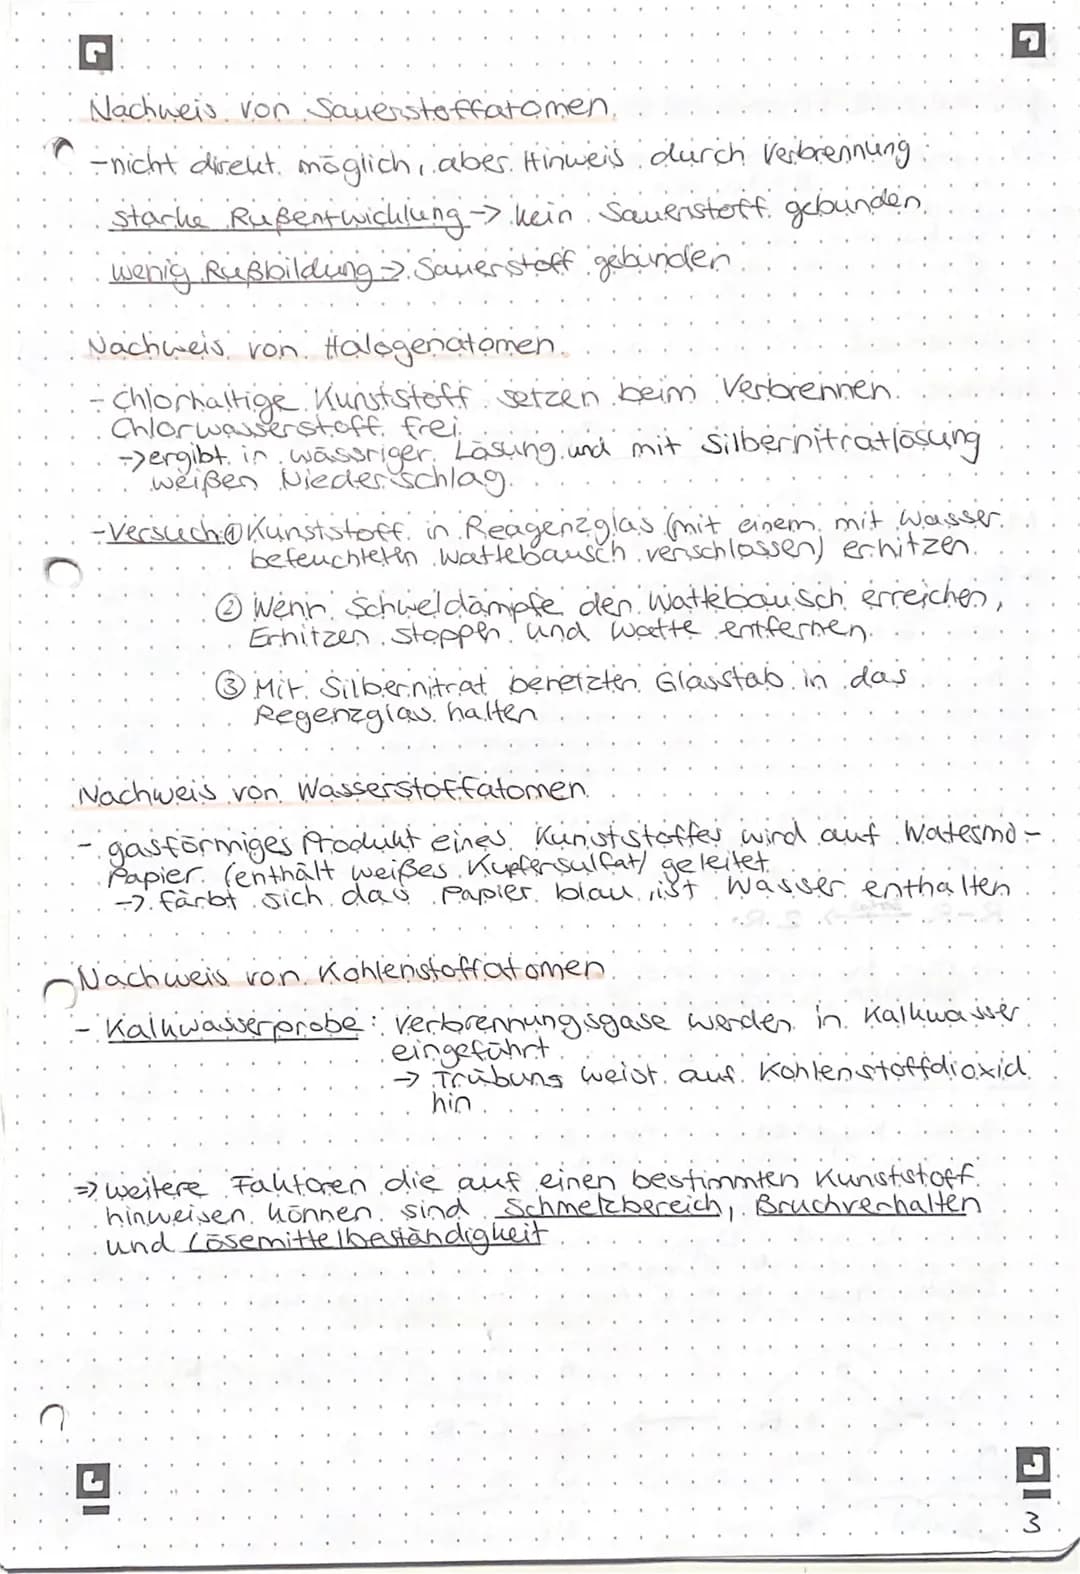 Nachweis von Sauerstoffatomen
-nicht direkt möglich, aber Hinweis durch Verbrennung
starke Rußentwicklung -> kein Sauerstoff gebunden
wenig Rußbildung -> Sauerstoff gebunden
Nachweis von Halogenatomen
- chlorhaltige Kunststoff setzen beim Verbrennen
Chlorwasserstoff frei
-> ergibt in wässriger Lösung und mit Silbernitratlösung
weißen Niederschlag
-Versuch: ① Kunststoff in Reagenzglas (mit einem mit Wasser
befeuchteten Wattebausch verschlossen) erhitzen
② Wenn Schweldämpfe den Wattebausch erreichen,
Erhitzen stoppen und Watte entfernen
③ Mit Silbernitrat benetzten Glasstab in das
Regenzglas halten
Nachweis von Wasserstoffatomen
- gasförmiges Produkt eines Kunststoffes wird auf Watesmo-
Papier (enthält weißes Kupfersulfat) geleitet
-> färbt sich das Papier blau, ist Wasser enthalten
Nachweis von Kohlenstoffatomen
- Kalkwasserprobe: Verbrennungsgase werden in Kalkwasser
eingeführt
-> Trübung weist auf Kohlenstoffdioxid
hin
=> weitere Faktoren die auf einen bestimmten Kunststoff
hinweisen können sind Schmelzbereich, Bruchverhalten
und Lösemittelbeständigkeit
3